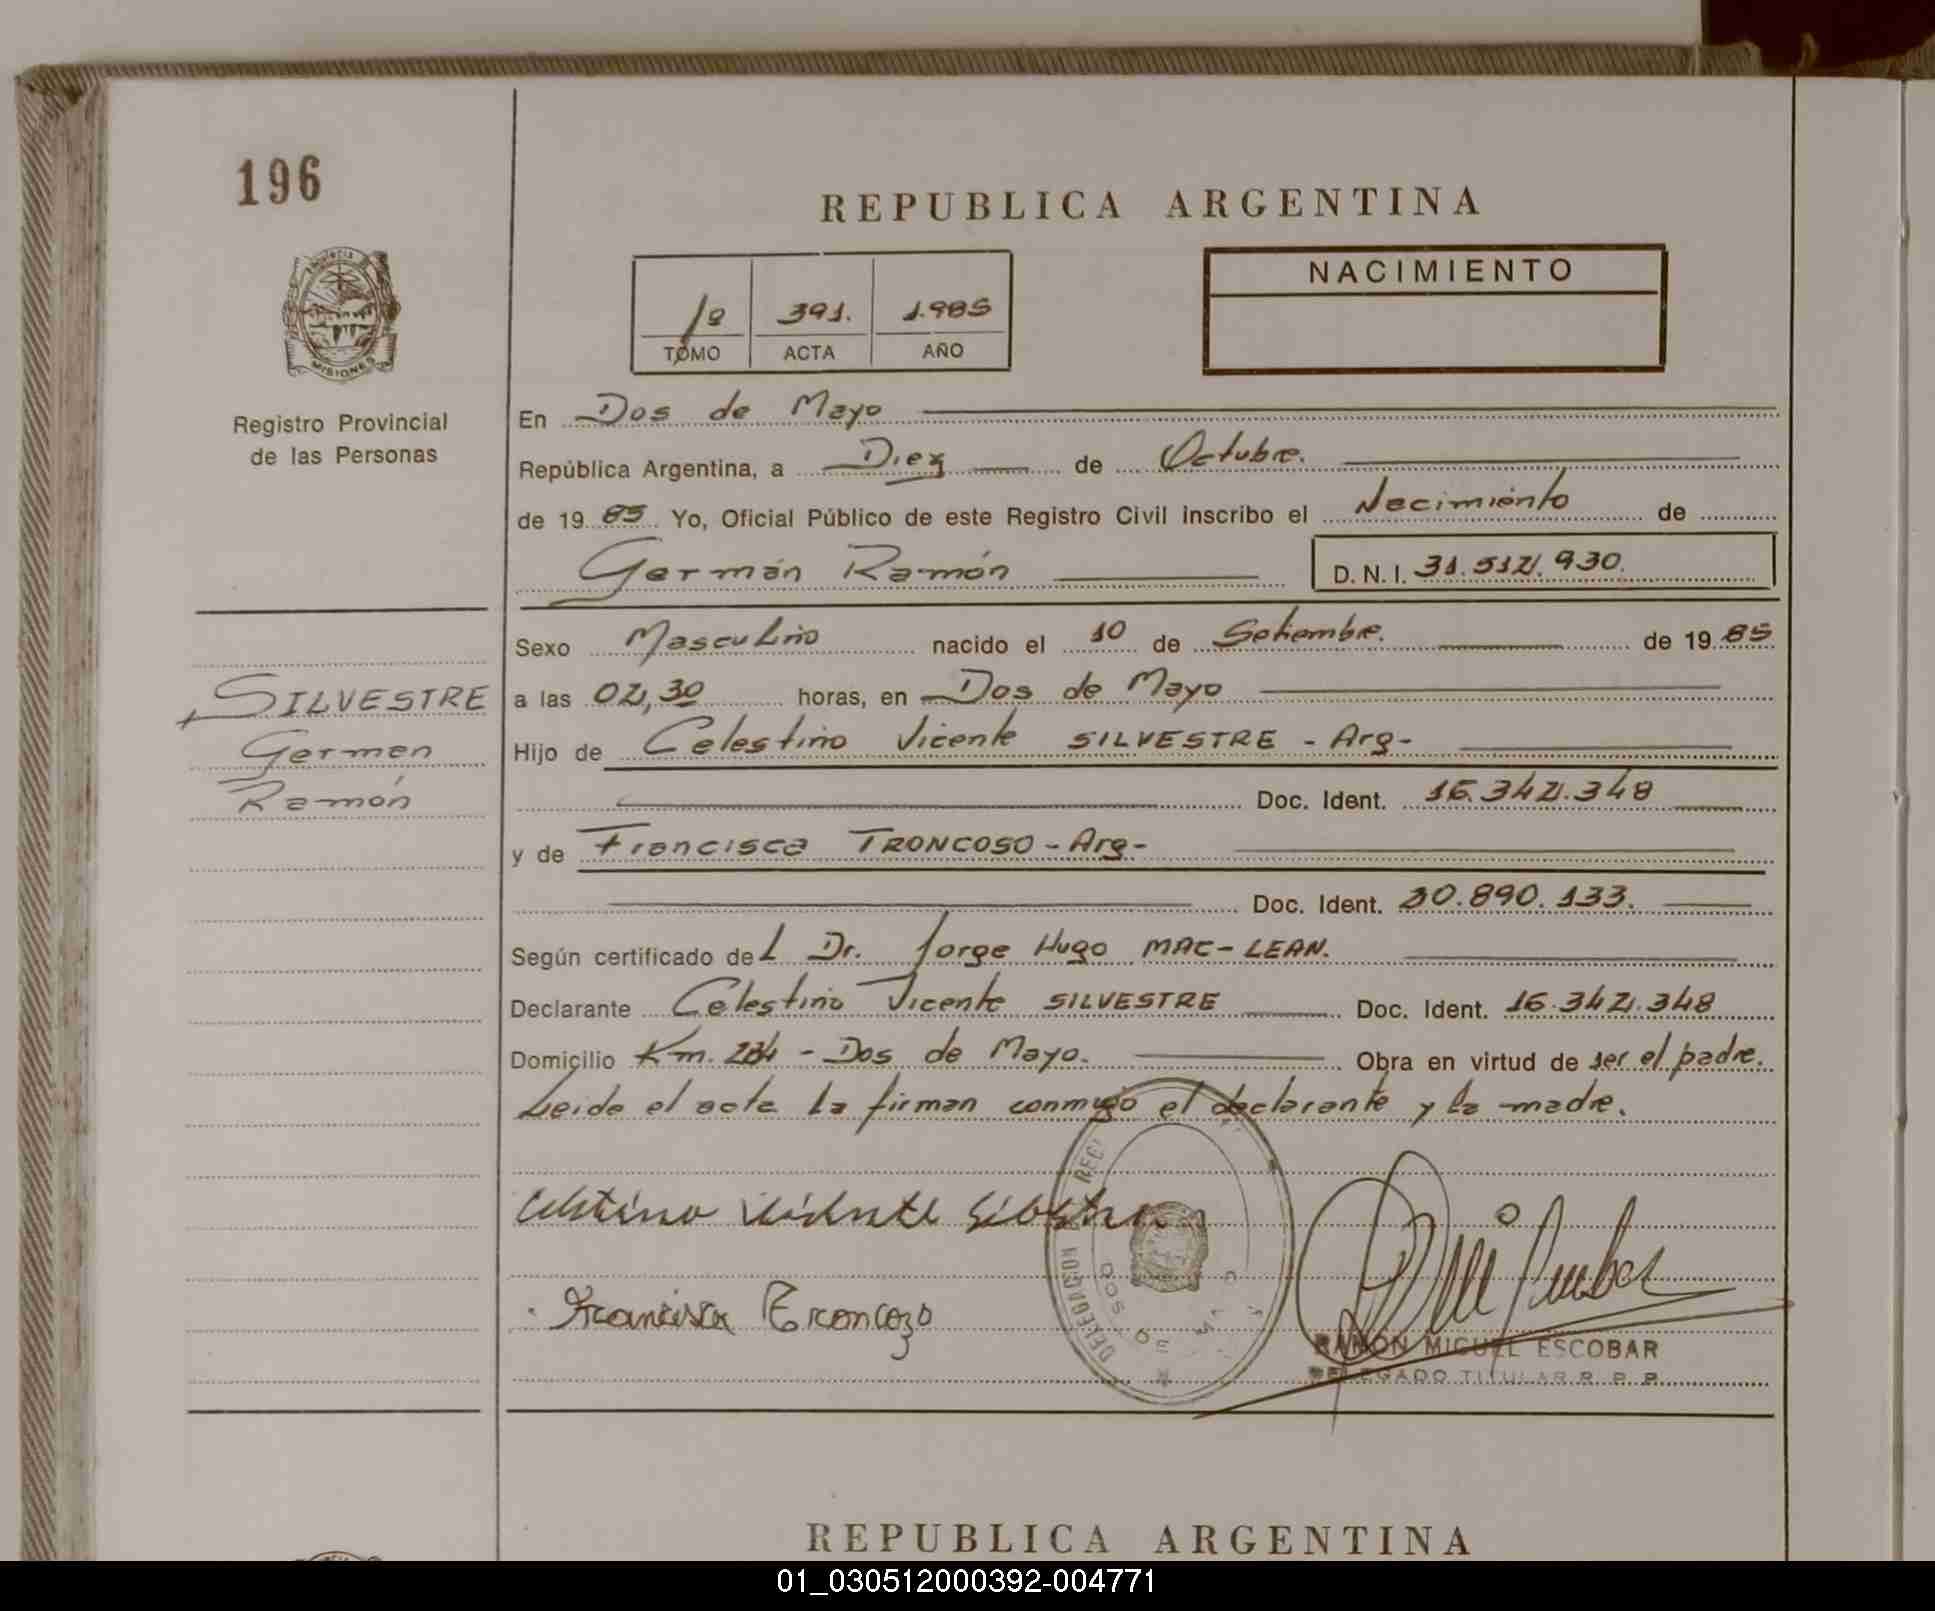 196
REPUBLICA ARGENTINA
1º 391. 1.985
TOMO ACTA AÑO
NACIMIENTO
MISIONES
Registro Provincial
de las Personas
En Dos de Mayo
República Argentina, a Diez de Octubre.
de 19 85 Yo, Oficial Público de este Registro Civil inscribo el Nacimiento de
Germán Ramón D.N.I. 31.512.930.
Sexo Masculino nacido el 10 de Setiembre. de 19 85
SILVESTRE
German
Ramón
a las 02,30 horas, en Dos de Mayo
Hijo de Celestino Vicente SILVESTRE - Arg-
Doc. Ident. 16.342.348
y de Francisca TRONCOSO - Arg-
Doc. Ident. 30.890.133.
Según certificado del Dr. Jorge Hugo MAC-LEAN.
Declarante Celestino Vicente SILVESTRE Doc. Ident. 16.342.348
Domicilio Km. 234 - Dos de Mayo. Obra en virtud de ser el padre.
Leida el acta la firman conmigo el declarante y la madre.
DELEGACION DOS DE
Francisca Troncozo
RAMON MIGUEL ESCOBAR
DELEGADO TITULAR R. P. P.
REPUBLICA ARGENTINA
01_030512000392-004771